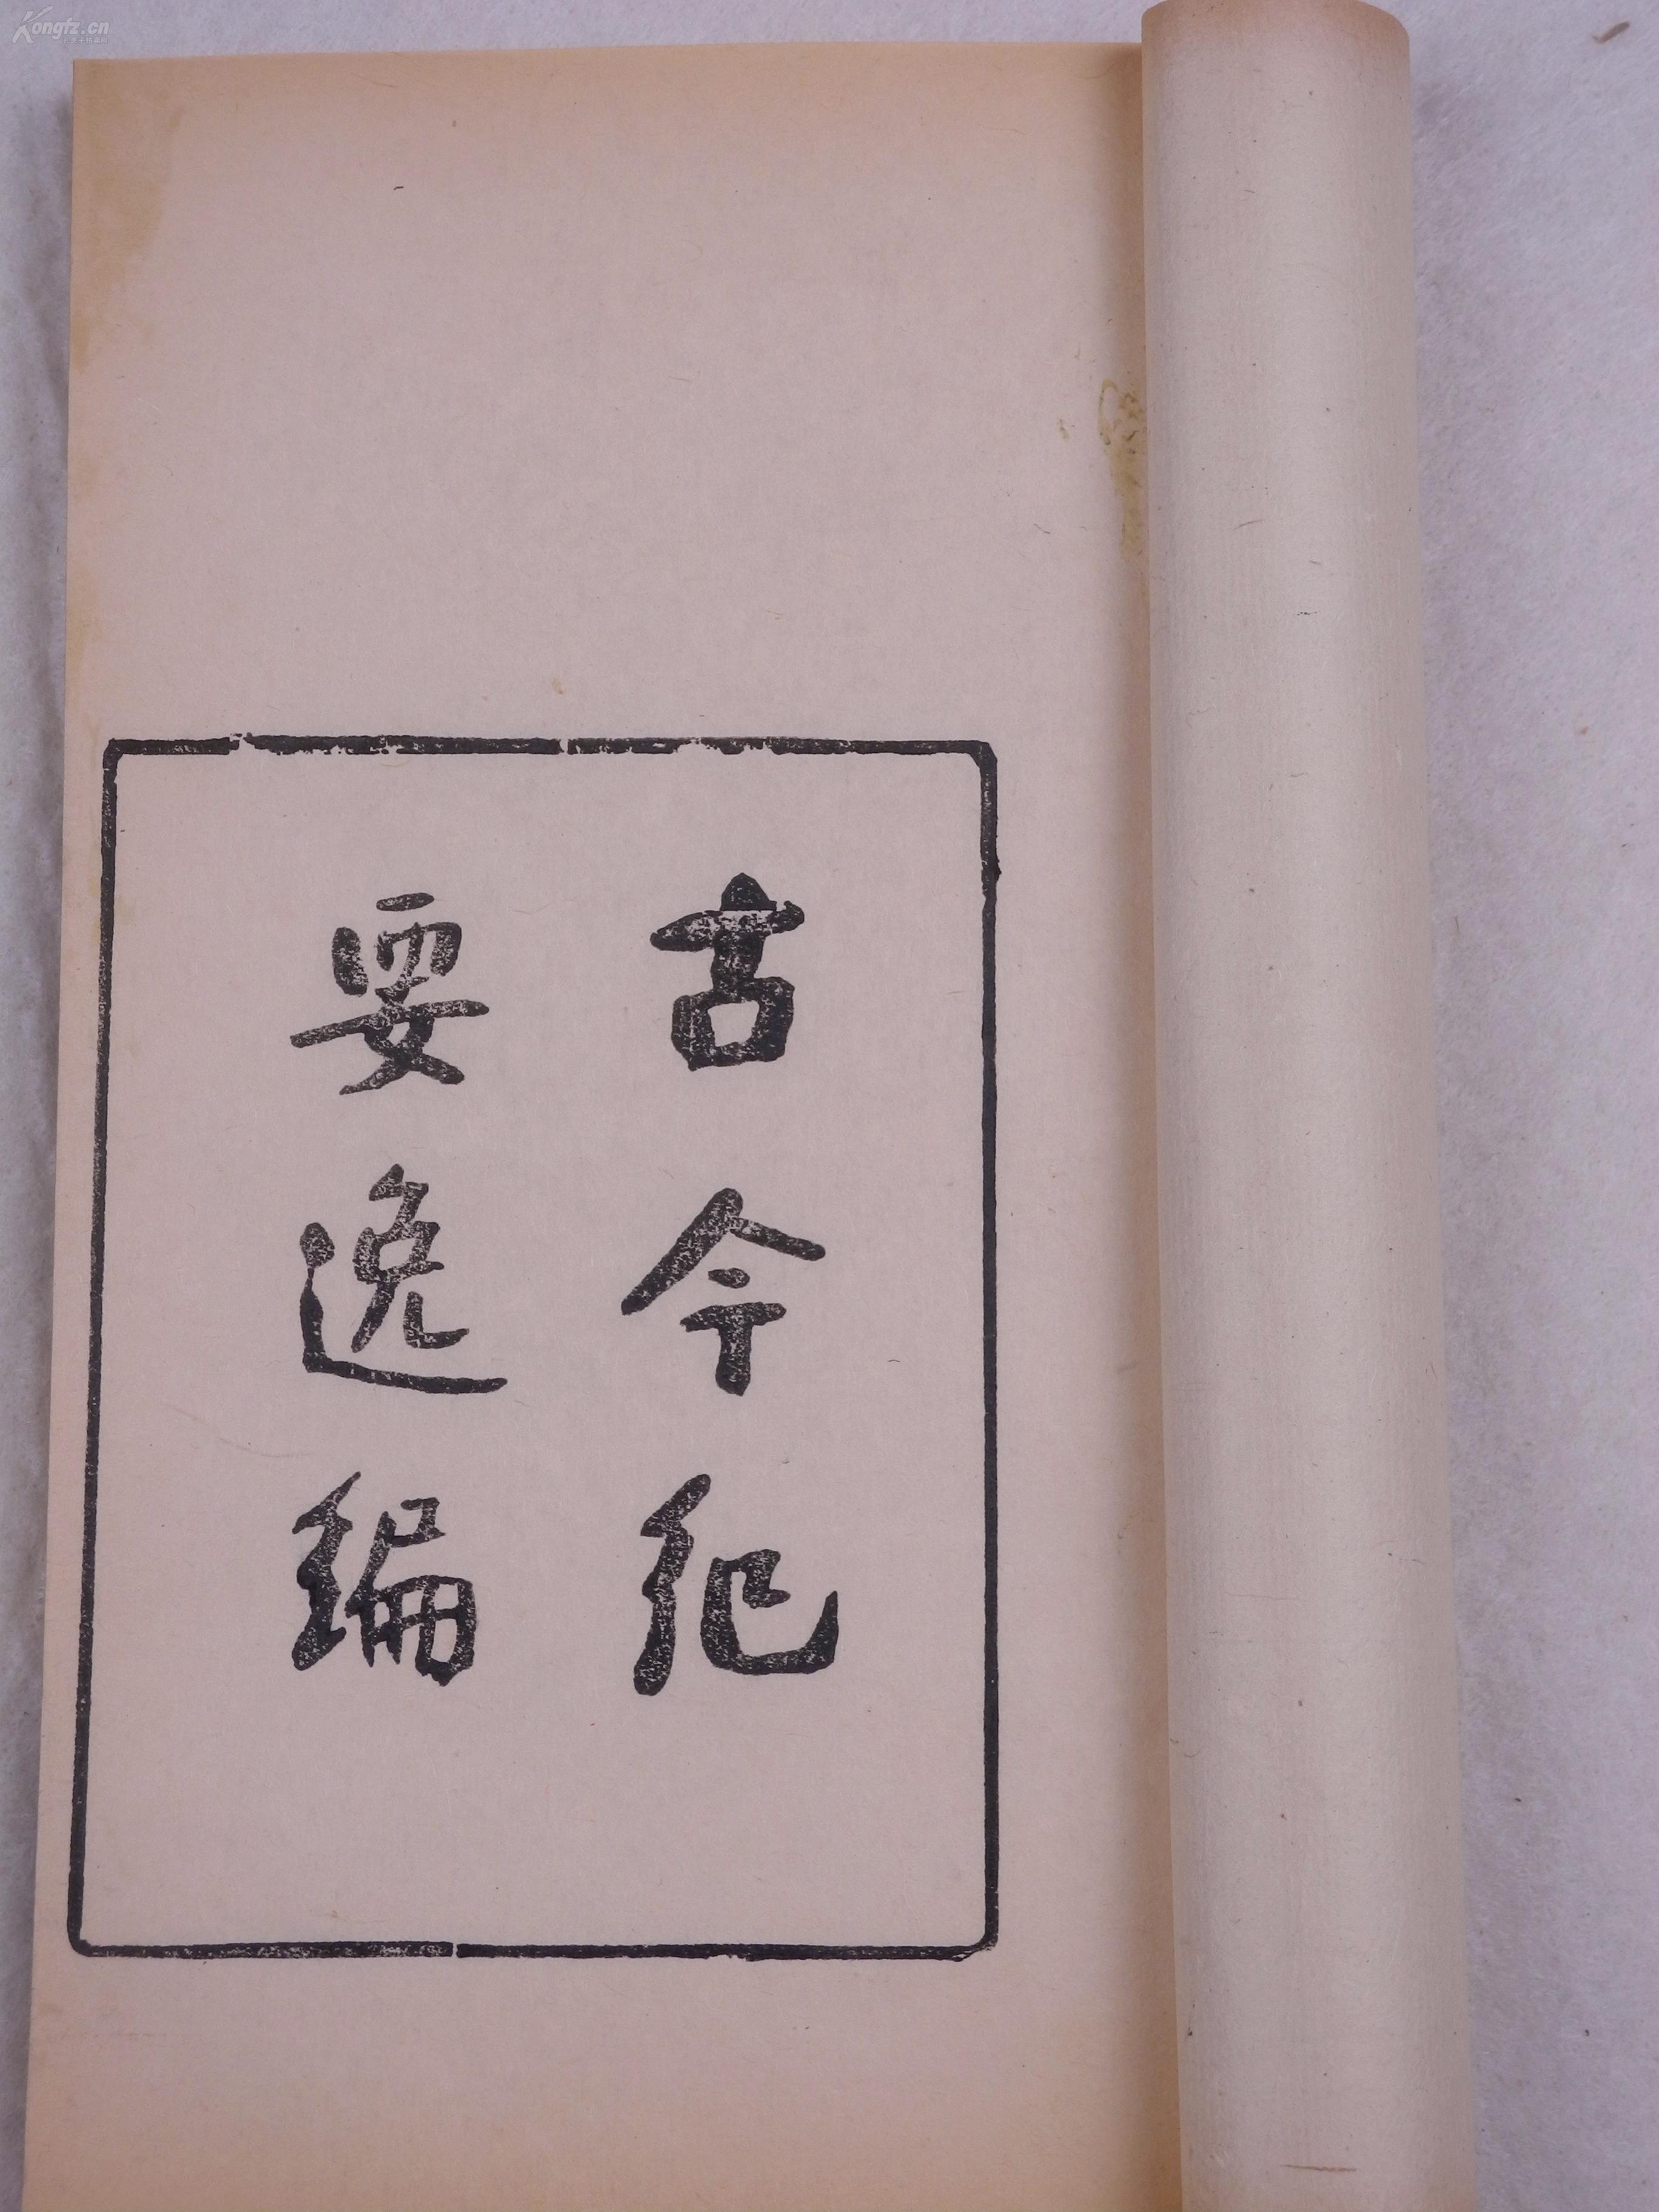 古今紀
要逸編
Kongfz.cn